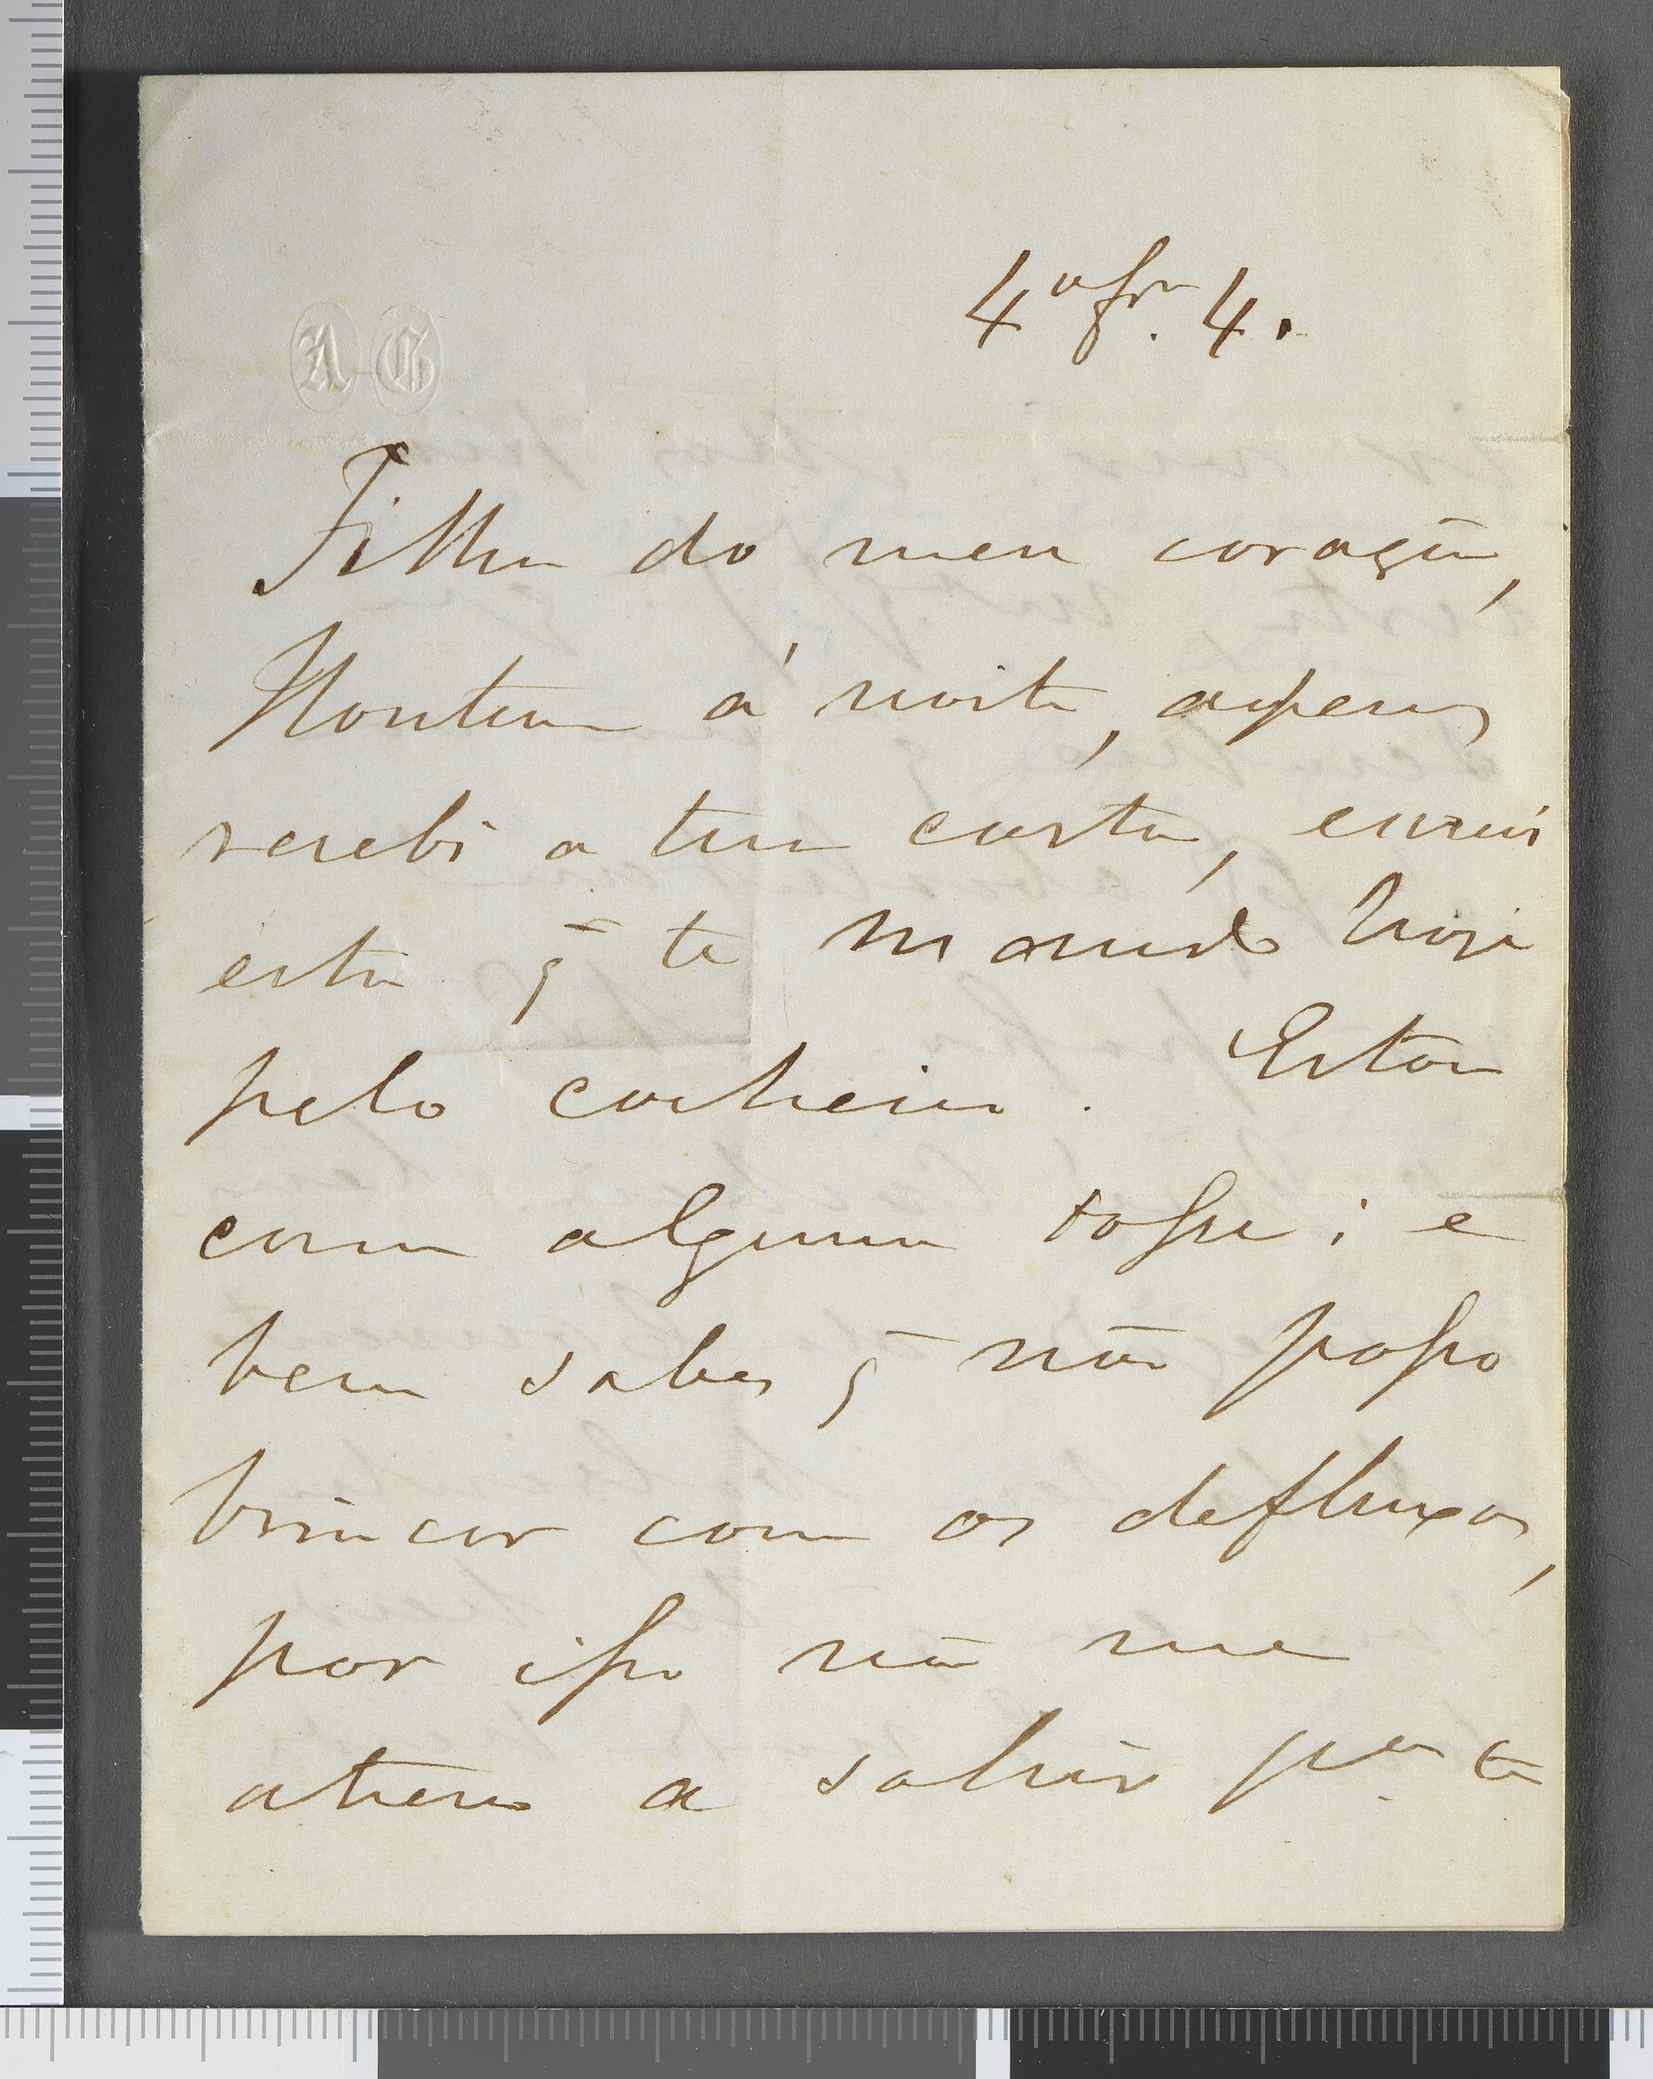 4ª fr.ª 4.
A G
Filha do meu coração,
Hontem á noite, apenas
recebi a tua carta, enviei
esta q̃ te mando hoje
pelo cocheiro. Estou
com alguma tosse; e
bem sabes q̃ não posso
brincar com os defluxos,
por isso não me
atrevo a sahir p.ª te